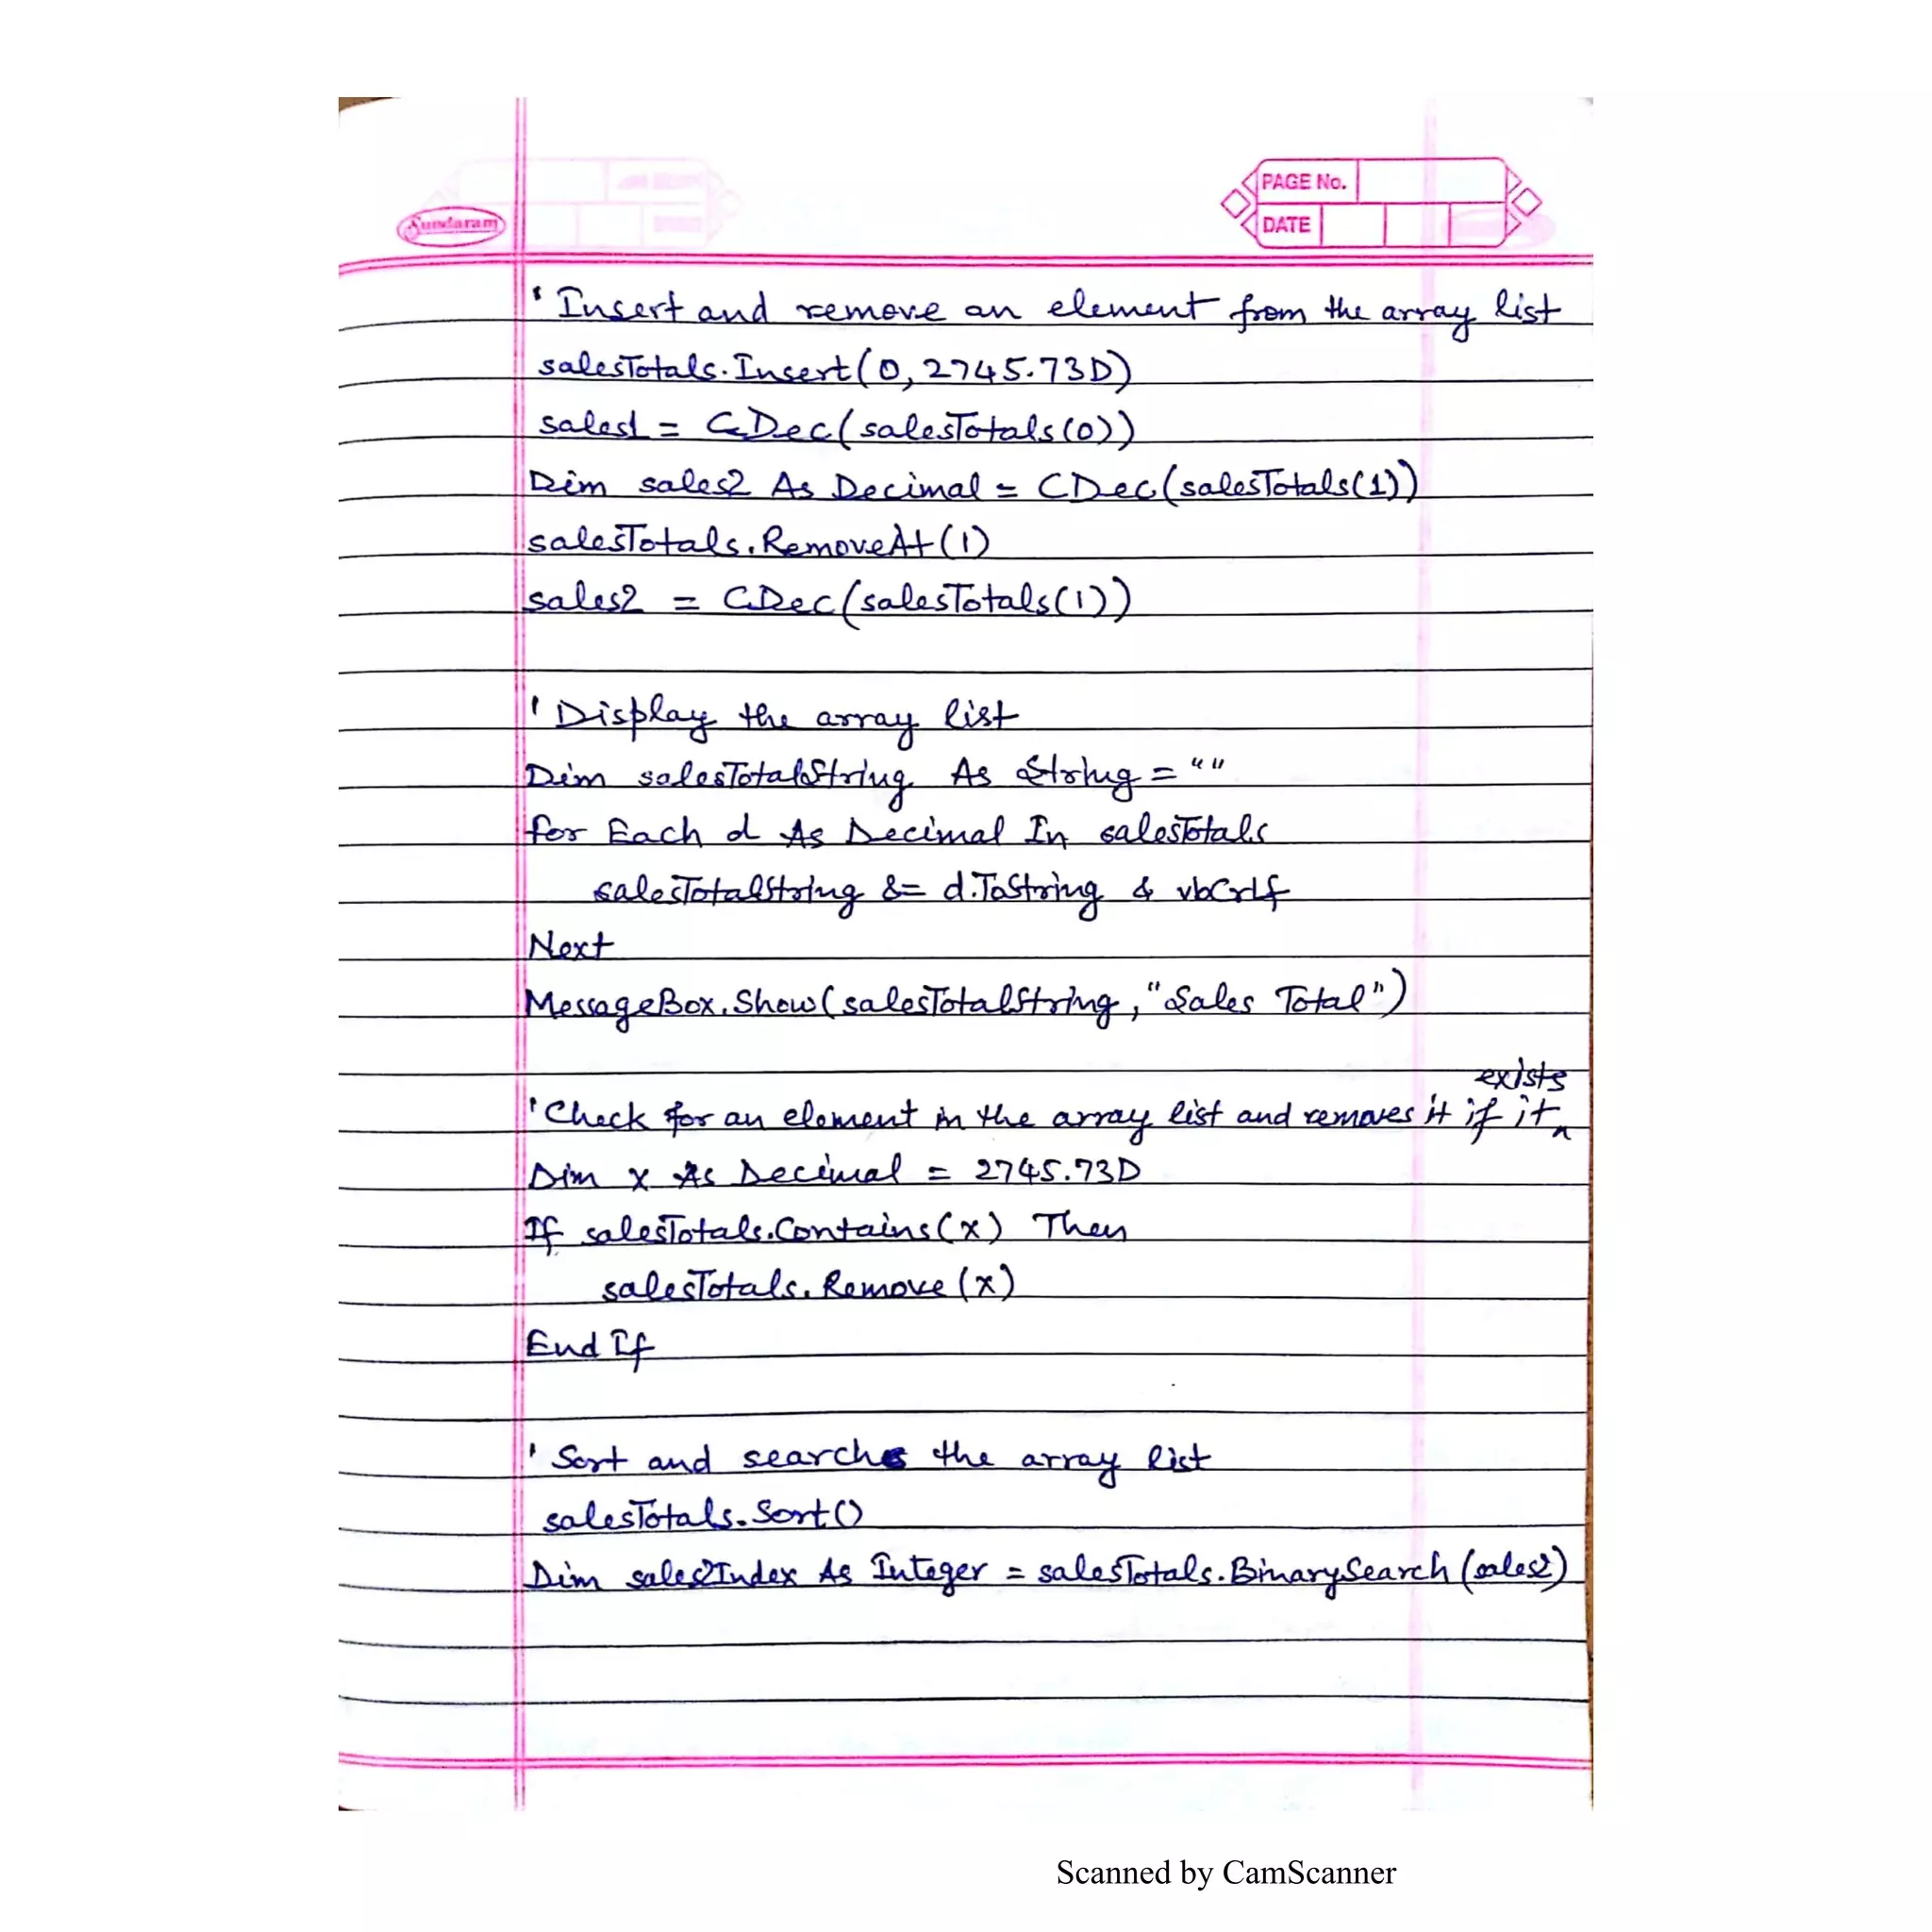 Sundaram
PAGE No.
DATE
' Insert and remove an element from the array list
salesTotals.Insert(0, 2745.73D)
sales1 = CDec(salesTotals(0))
Dim sales2 As Decimal = CDec(salesTotals(1))
salesTotals.RemoveAt(1)
sales2 = CDec(salesTotals(1))
' Display the array list
Dim salesTotalString As String = ""
For Each d As Decimal In salesTotals
salesTotalString &= d.ToString & vbCrLf
Next
MessageBox.Show(salesTotalString, "Sales Total")
' Check for an element in the array list and removes it if it exists
Dim x As Decimal = 2745.73D
If salesTotals.Contains(x) Then
salesTotals.Remove(x)
End If
' Sort and search the array list
salesTotals.Sort()
Dim sales2Index As Integer = salesTotals.BinarySearch(sales2)
Scanned by CamScanner